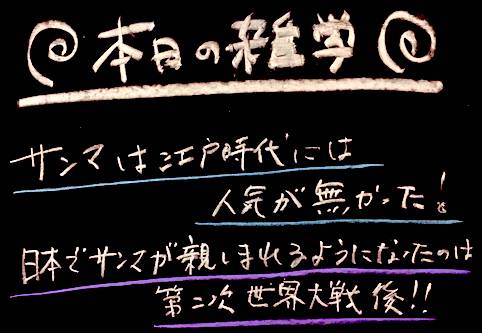 本日の雑学
サンマは江戸時代には
人気が無かった!
日本でサンマが親しまれるようになったのは
第二次世界大戦後!!